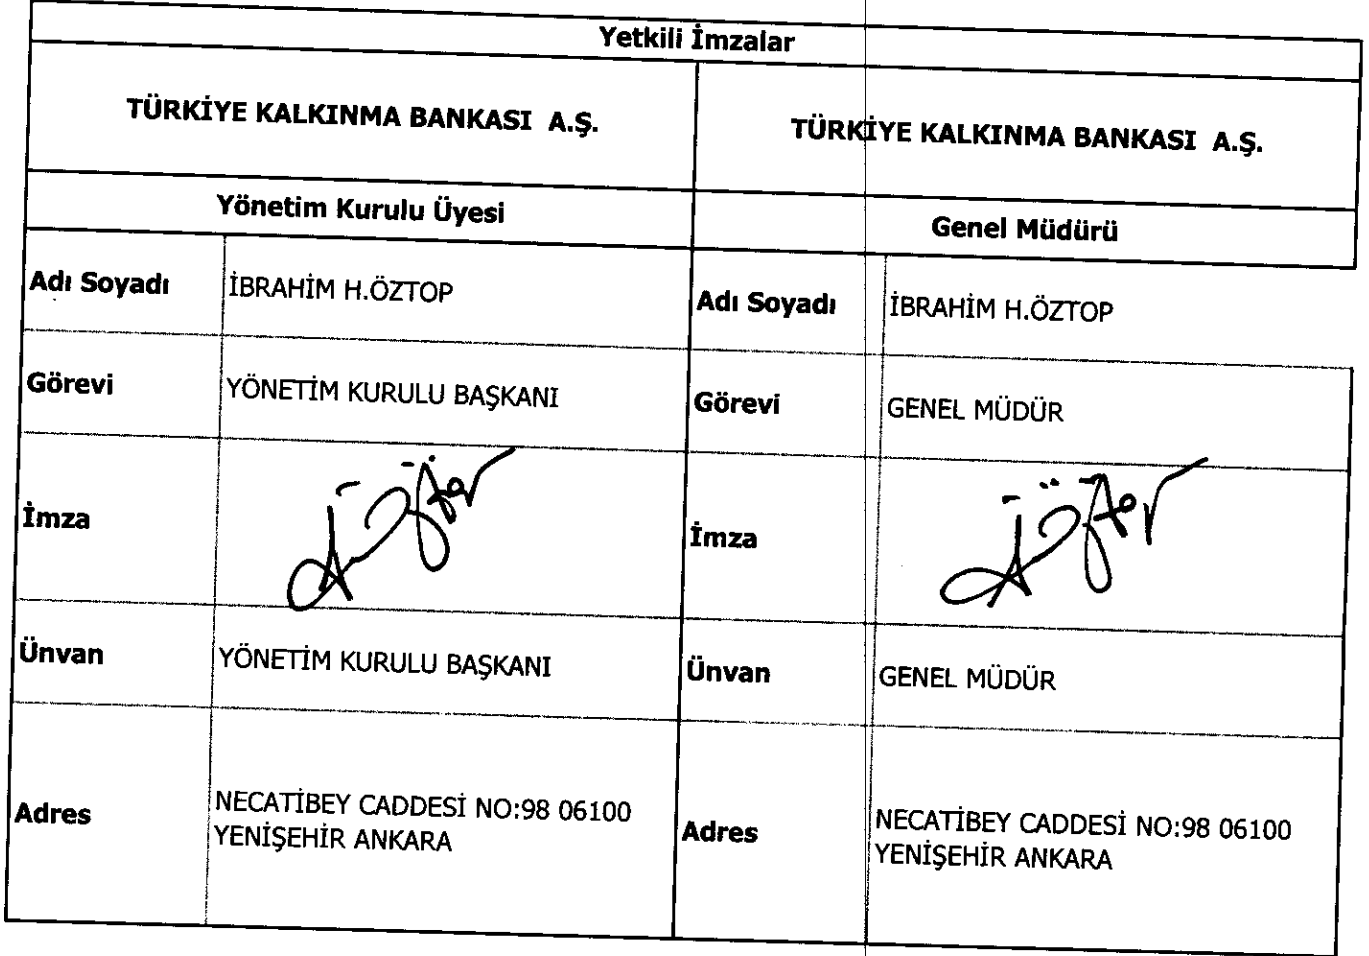 Yetkili İmzalar
TÜRKİYE KALKINMA BANKASI A.Ş.
TÜRKİYE KALKINMA BANKASI A.Ş.
Yönetim Kurulu Üyesi
Genel Müdürü
Adı Soyadı
İBRAHİM H.ÖZTOP
Adı Soyadı
İBRAHİM H.ÖZTOP
Görevi
YÖNETİM KURULU BAŞKANI
Görevi
GENEL MÜDÜR
İmza
İmza
Ünvan
YÖNETİM KURULU BAŞKANI
Ünvan
GENEL MÜDÜR
Adres
NECATİBEY CADDESİ NO:98 06100
YENİŞEHİR ANKARA
Adres
NECATİBEY CADDESİ NO:98 06100
YENİŞEHİR ANKARA